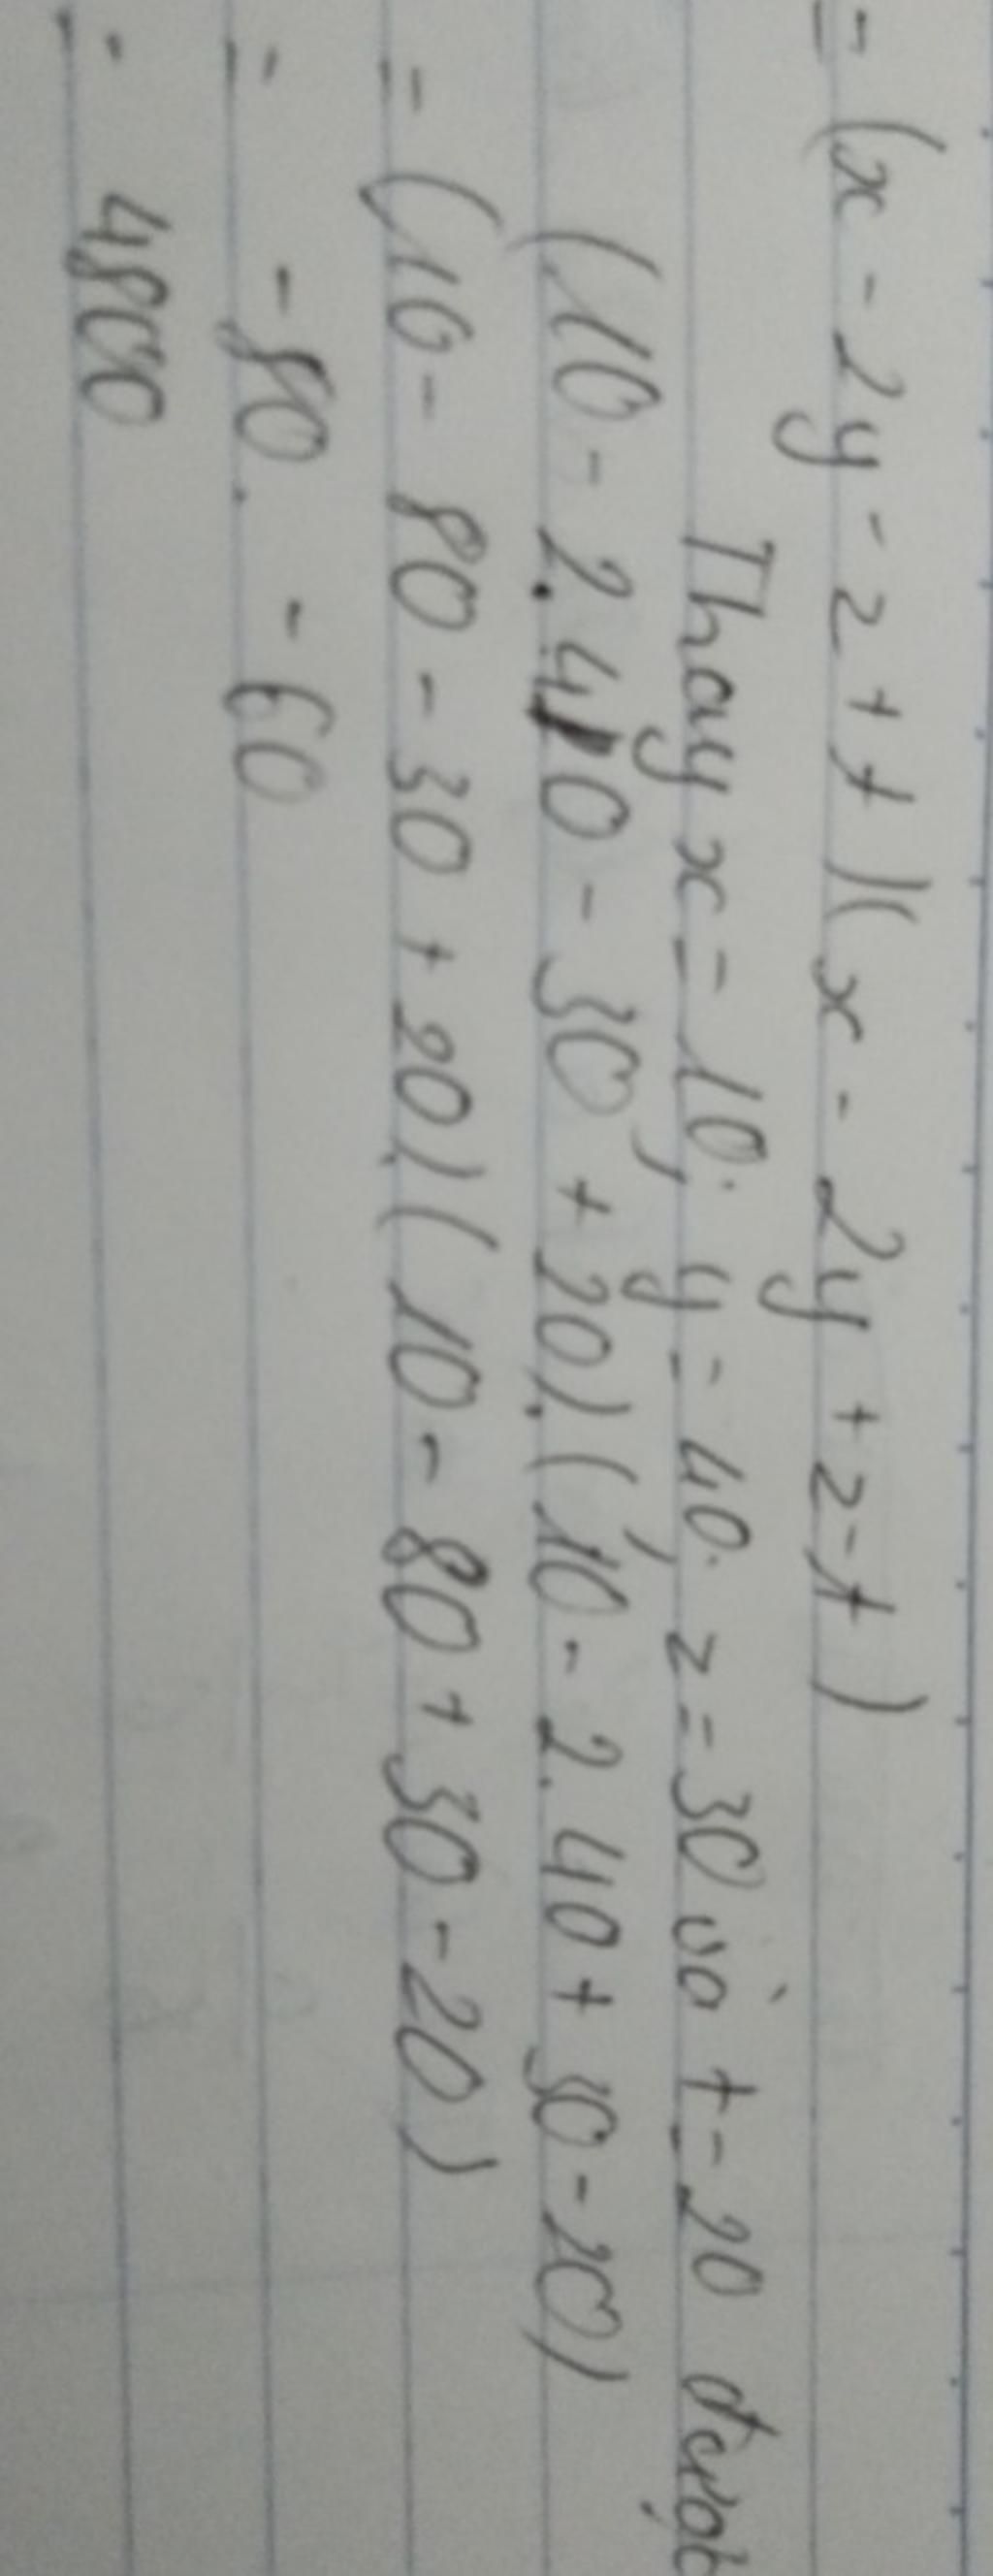 = (x - 2y - z + t)(x - 2y + z - t)
Thay x = 10; y = 40; z = 30 và t = 20 được
(10 - 2.40 - 30 + 20).(10 - 2.40 + 30 - 20)
= (10 - 80 - 30 + 20).(10 - 80 + 30 - 20)
= -80. -60
= 4800